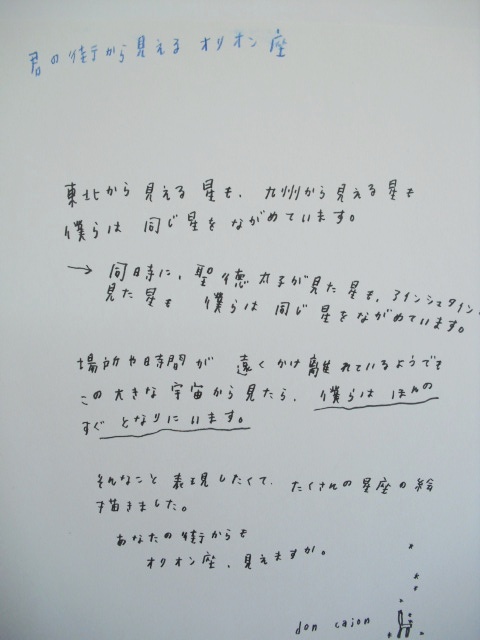 君の街から見える オリオン座
東北から見える星も、九州から見える星も
僕らは 同じ星をながめています。
→ 同時に、聖徳太子が見た星も、アインシュタイン
見た星も 僕らは同じ星をながめています。
場所や時間が 遠くかけ離れているようでも
この大きな宇宙から見たら、僕らは ほんの
すぐ となりにいます。
そんなこと 表現したくて、たくさんの星座の絵
描きました。
あなたの街からも
オリオン座、見えますか。
don cajon